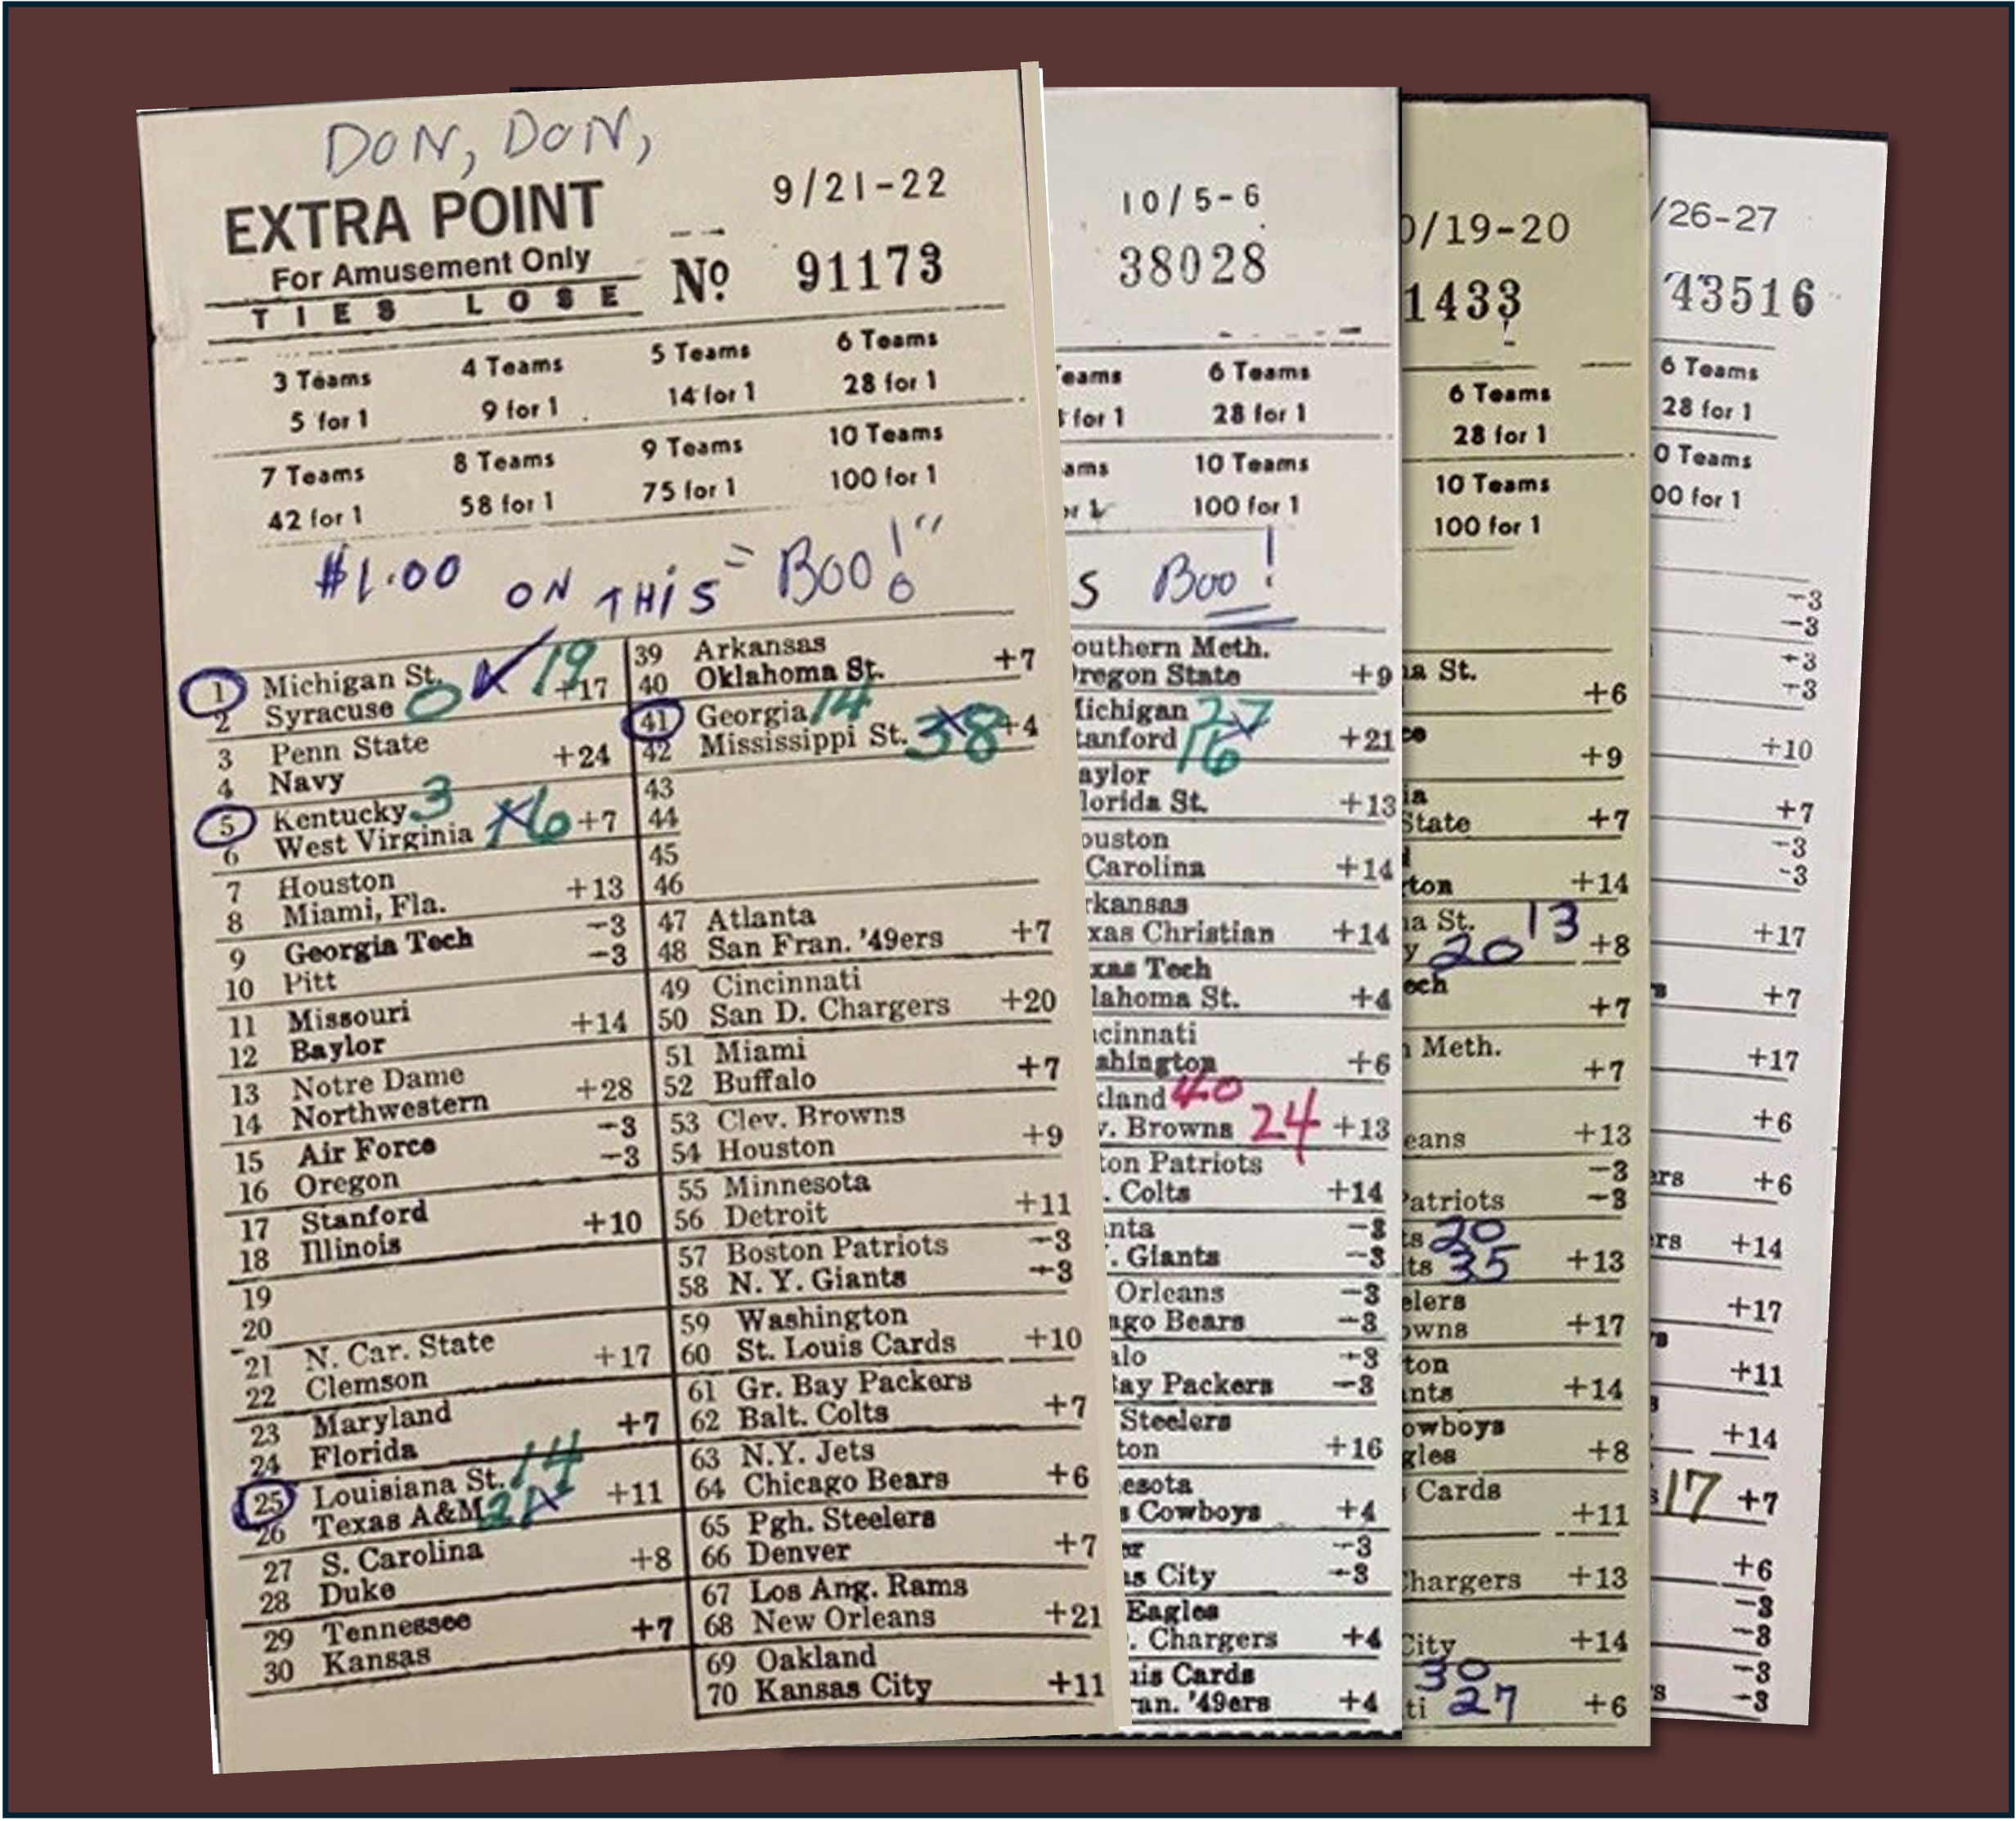 DON, DON,
EXTRA POINT
For Amusement Only
TIES LOSE
9/21-22
No. 91173
3 Teams 4 Teams 5 Teams 6 Teams
5 for 1 9 for 1 14 for 1 28 for 1
7 Teams 8 Teams 9 Teams 10 Teams
42 for 1 58 for 1 75 for 1 100 for 1
$1.00 ON THIS = BOO!"
1 Michigan St. 19
2 Syracuse 0 +17
3 Penn State
4 Navy +24
5 Kentucky 3
6 West Virginia 16 +7
7 Houston
8 Miami, Fla. +13
9 Georgia Tech -3
10 Pitt -3
11 Missouri
12 Baylor +14
13 Notre Dame
14 Northwestern +28
15 Air Force -3
16 Oregon -3
17 Stanford
18 Illinois +10
19
20
21 N. Car. State
22 Clemson +17
23 Maryland
24 Florida +7
25 Louisiana St. 14
26 Texas A&M 21 +11
27 S. Carolina
28 Duke +8
29 Tennessee
30 Kansas +7
39 Arkansas
40 Oklahoma St. +7
41 Georgia 14
42 Mississippi St. 38 +4
43
44
45
46
47 Atlanta
48 San Fran. '49ers +7
49 Cincinnati
50 San D. Chargers +20
51 Miami
52 Buffalo +7
53 Clev. Browns
54 Houston +9
55 Minnesota
56 Detroit +11
57 Boston Patriots -3
58 N. Y. Giants -3
59 Washington
60 St. Louis Cards +10
61 Gr. Bay Packers
62 Balt. Colts +7
63 N.Y. Jets
64 Chicago Bears +6
65 Pgh. Steelers
66 Denver +7
67 Los Ang. Rams
68 New Orleans +21
69 Oakland
70 Kansas City +11
10/5-6
38028
eams 6 Teams
for 1 28 for 1
ams 10 Teams
or 1 100 for 1
S Boo!
outhern Meth.
regon State +9
ichigan 27
tanford 16 +21
aylor
lorida St. +13
ouston
Carolina +14
rkansas
xas Christian +14
xas Tech
lahoma St. +4
cinnati
shington +6
kland 40
v. Browns 24 +13
ton Patriots
. Colts +14
nta -3
. Giants -3
Orleans -3
ago Bears -3
alo -3
ay Packers -3
Steelers
ton +16
esota
s Cowboys +4
er -3
as City -3
Eagles
. Chargers +4
uis Cards
ran. '49ers +4
0/19-20
1433
6 Teams
28 for 1
10 Teams
100 for 1
na St.
+6
ce
+9
ia
State +7
ton +14
na St. 13
y 20 +8
ech
+7
n Meth.
+7
eans +13
-3
Patriots -3
ts 20
lts 35 +13
elers
owns +17
ton
ants +14
owboys
gles +8
Cards
+11
Chargers +13
City +14
30
ti 27 +6
/26-27
43516
6 Teams
28 for 1
0 Teams
00 for 1
-3
-3
-3
-3
+10
+7
-3
-3
+17
s +7
+17
+6
ers +6
rs +14
+17
+11
+14
s 17 +7
+6
-3
-3
-3
s -3